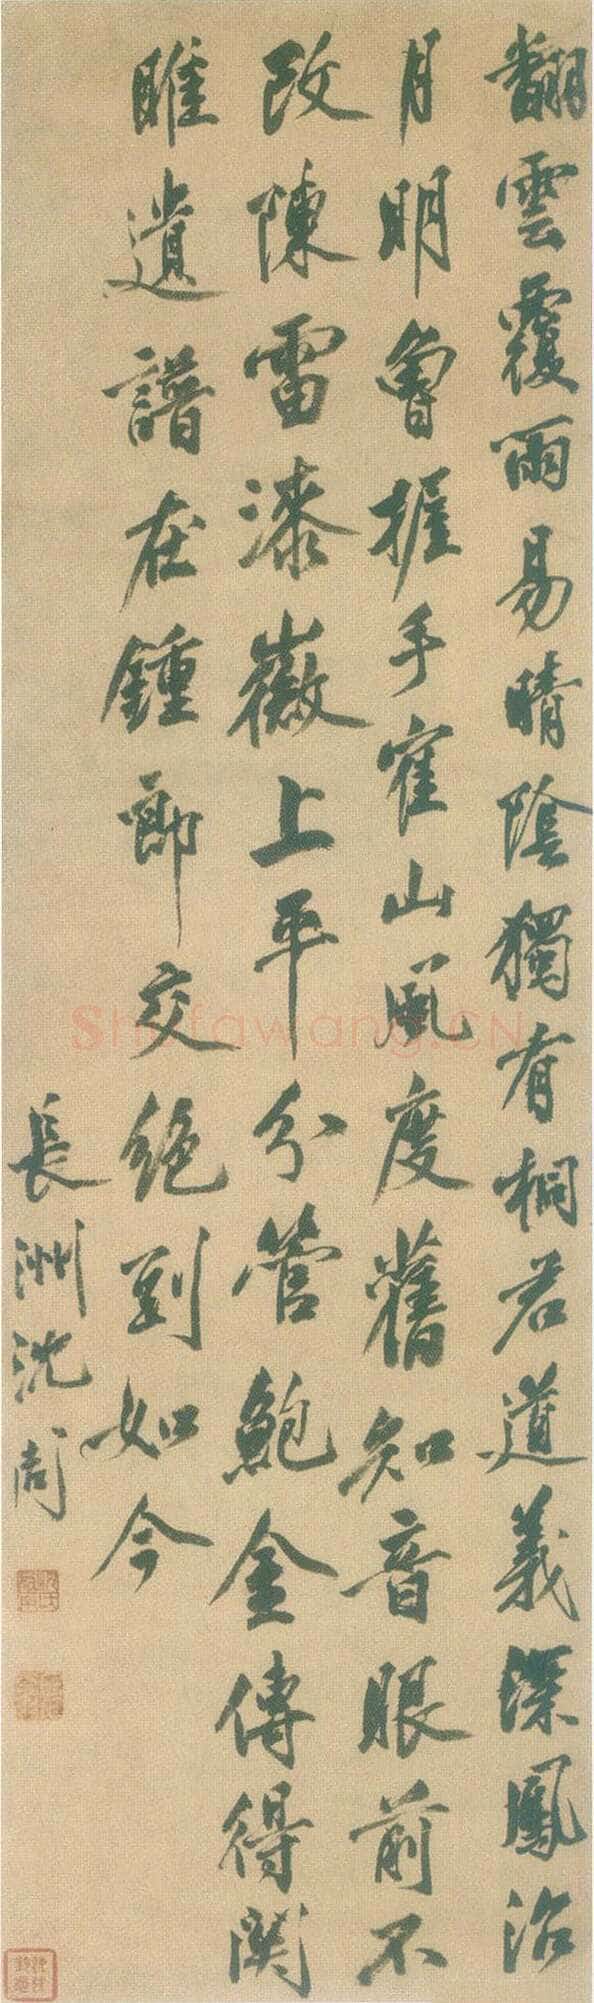 翻雲覆雨易晴陰獨有桐君道義深鳳沼
月明曾握手寉山風度舊知音眼前不
改陳雷漆徽上平分管鮑金傳得関
雎遺譜在鍾郎交絕到如今
長洲沈周
Shufawang.CN